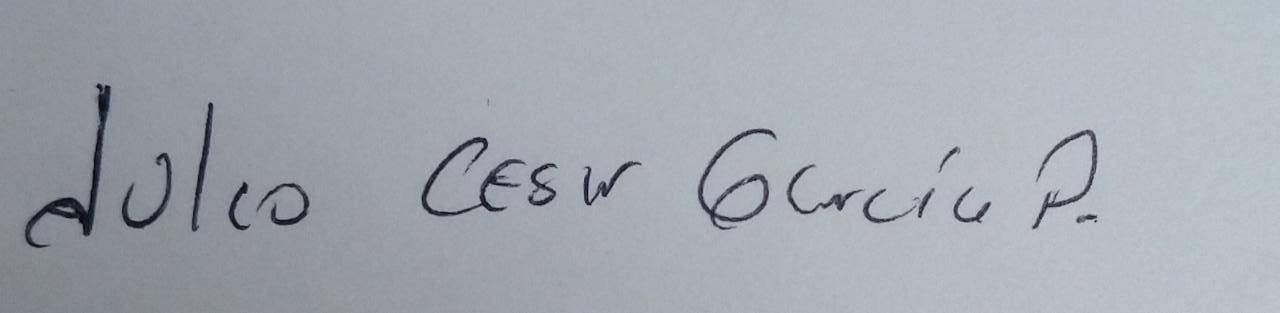 Julio Cesar García P.